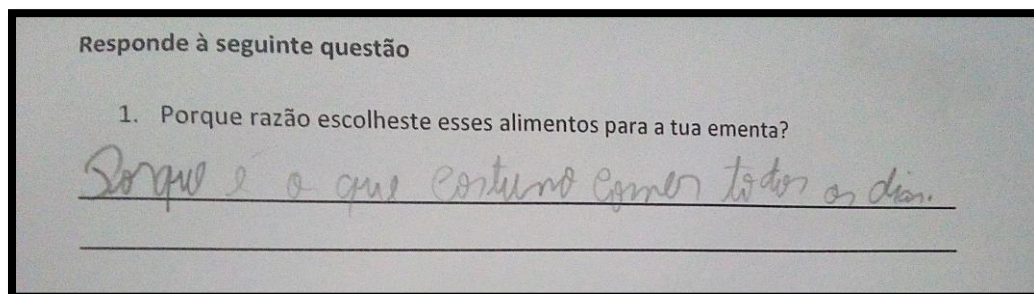 Responde à seguinte questão
1. Porque razão escolheste esses alimentos para a tua ementa?
Porque e o que costumo comer todos os dias.